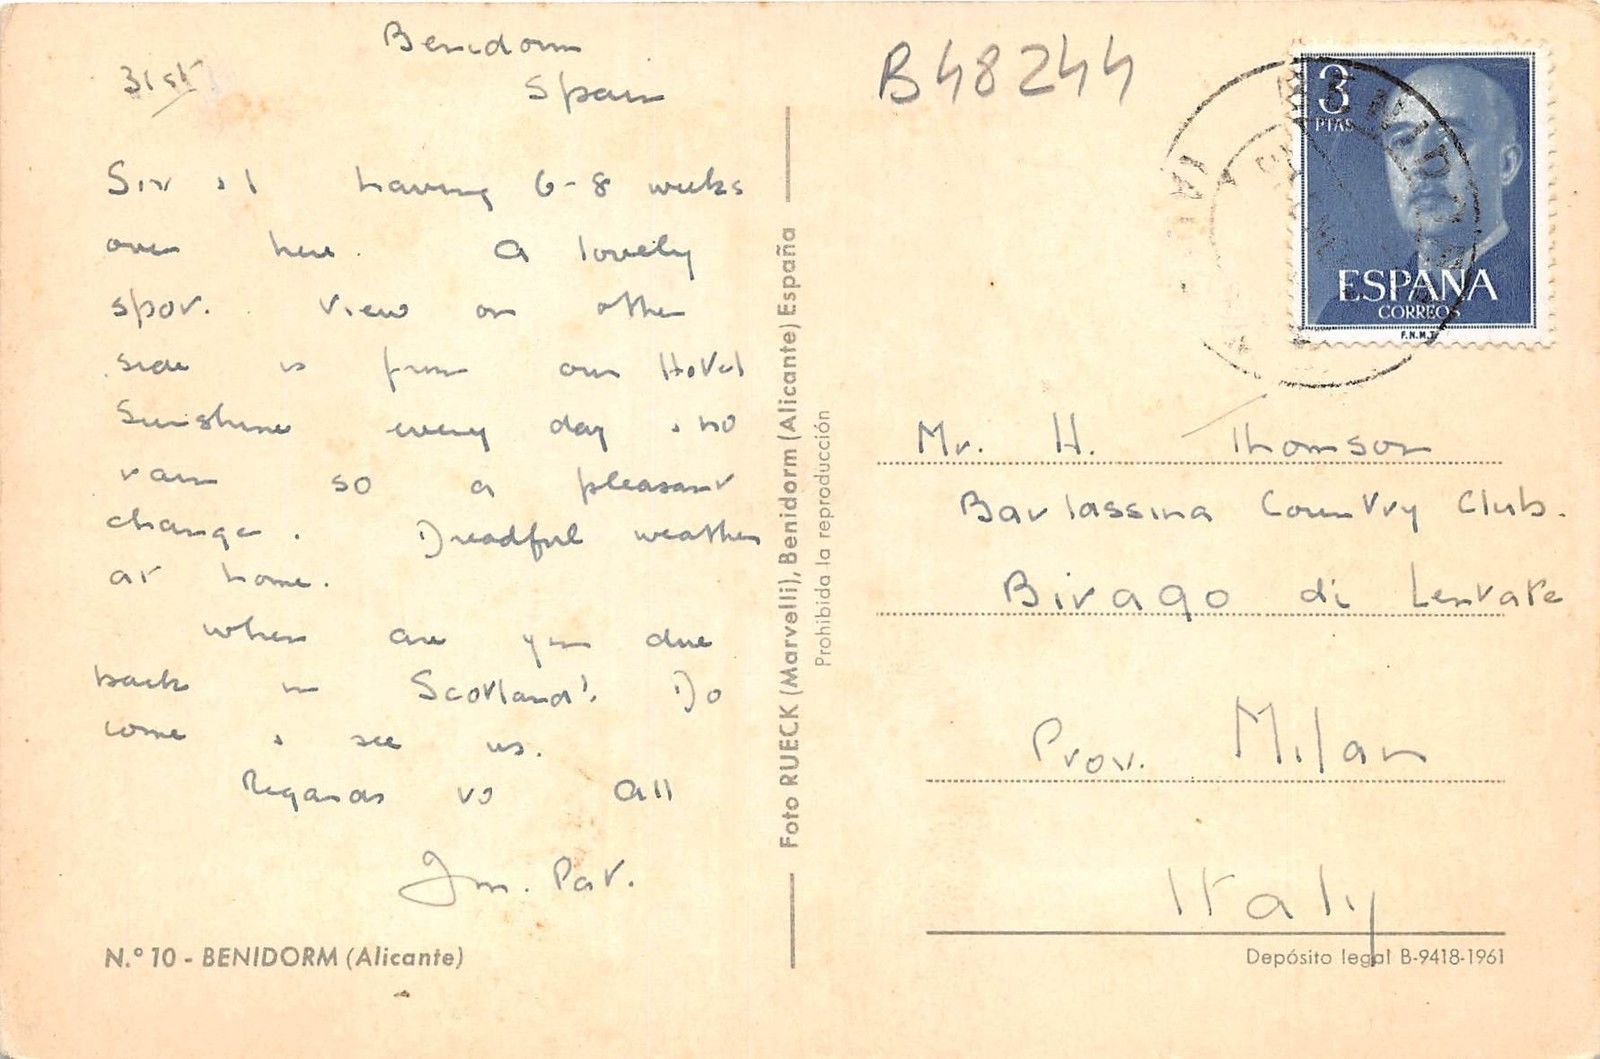 Benidorm
31st
Spain
Sir & I having 6-8 weeks
over here. A lovely
spot. View on other
side is from our Hotel
Sunshine every day & no
rain so a pleasant
change. Dreadful weather
at home.
When are you due
back in Scotland? Do
come & see us.
Regards to All
Pat.
N.º 10 - BENIDORM (Alicante)
Foto RUECK (Marvelli), Benidorm (Alicante) España
Prohibida la reproducción
B48244
3
PTAS
ESPAÑA
CORREOS
F.N.M.T.
BENIDORM
Mr. H. Thomson
Barlassina Country Club.
Birago di Lentate
Prov. Milan
Italy
Depósito legal B-9418-1961